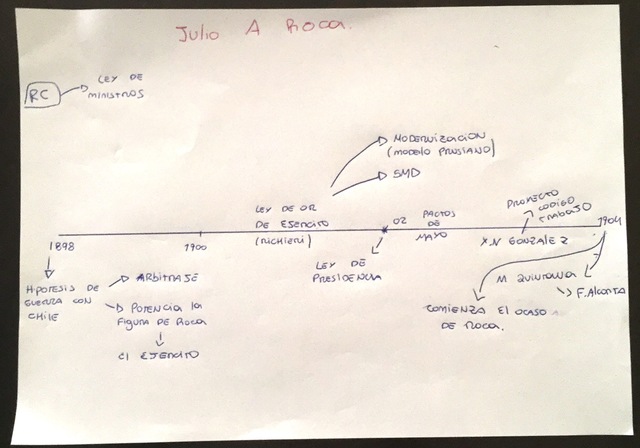 Julio A Roca.
RC
LEY DE
MINISTROS
MODERNIZACION
(MODELO PRUSIANO)
SMO
PROYECTO
CODIGO
TRABAJO
LEY DE OR
DE ESERCITO
(RICHIERI)
02 PACTOS
DE
MAYO
J.V GONZALEZ
1904
1898
1900
LEY DE
PRESIDENCIA
HIPOTESIS DE
GUERRA CON
CHILE
ARBITRAJE
POTENCIA LA
FIGURA DE ROCA
C/ EJERCITO
M QUINTANA
F. Alcorta
COMIENZA EL OCASO
DE ROCA.